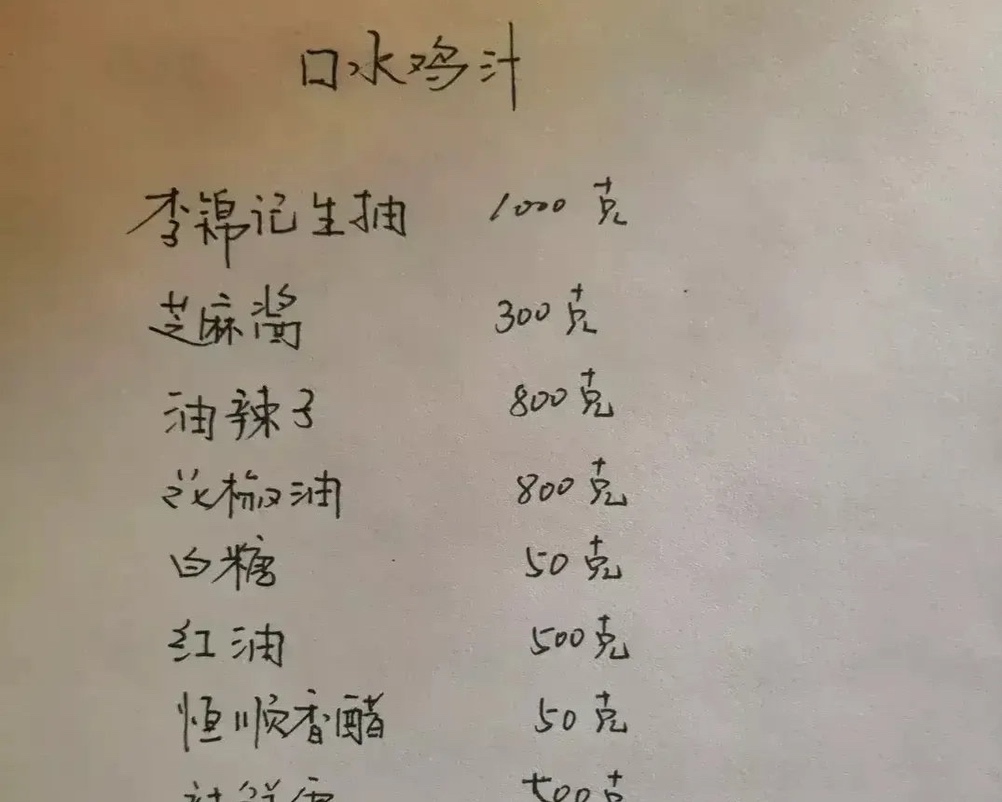 口水鸡汁
李锦记生抽 1000克
芝麻酱 300克
油辣子 800克
花椒油 800克
白糖 50克
红油 500克
恒顺香醋 50克
500克